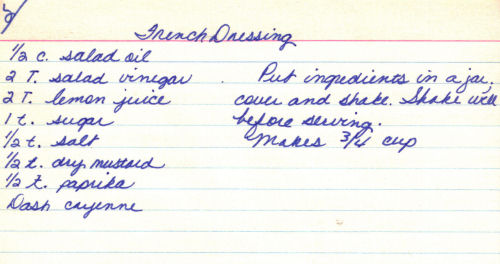 French Dressing
1/2 c. salad oil
2 T. salad vinegar
2 T. lemon juice
1 t. sugar
1/2 t. salt
1/2 t. dry mustard
1/2 t. paprika
Dash cayenne
Put ingredients in a jar,
cover and shake. Shake well
before serving.
Makes 3/4 cup